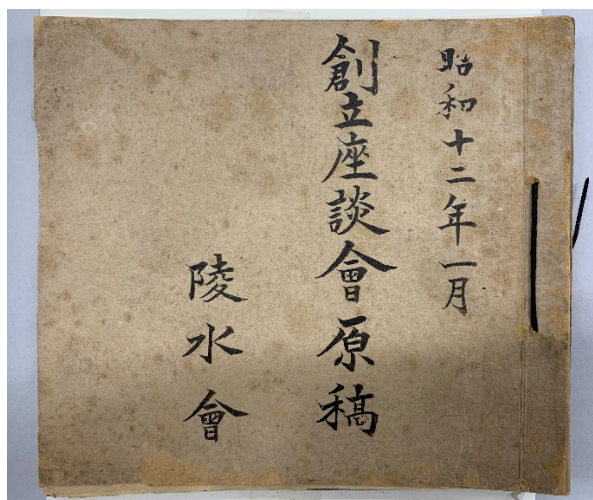 昭和十二年一月
創立座談會原稿
陵水會